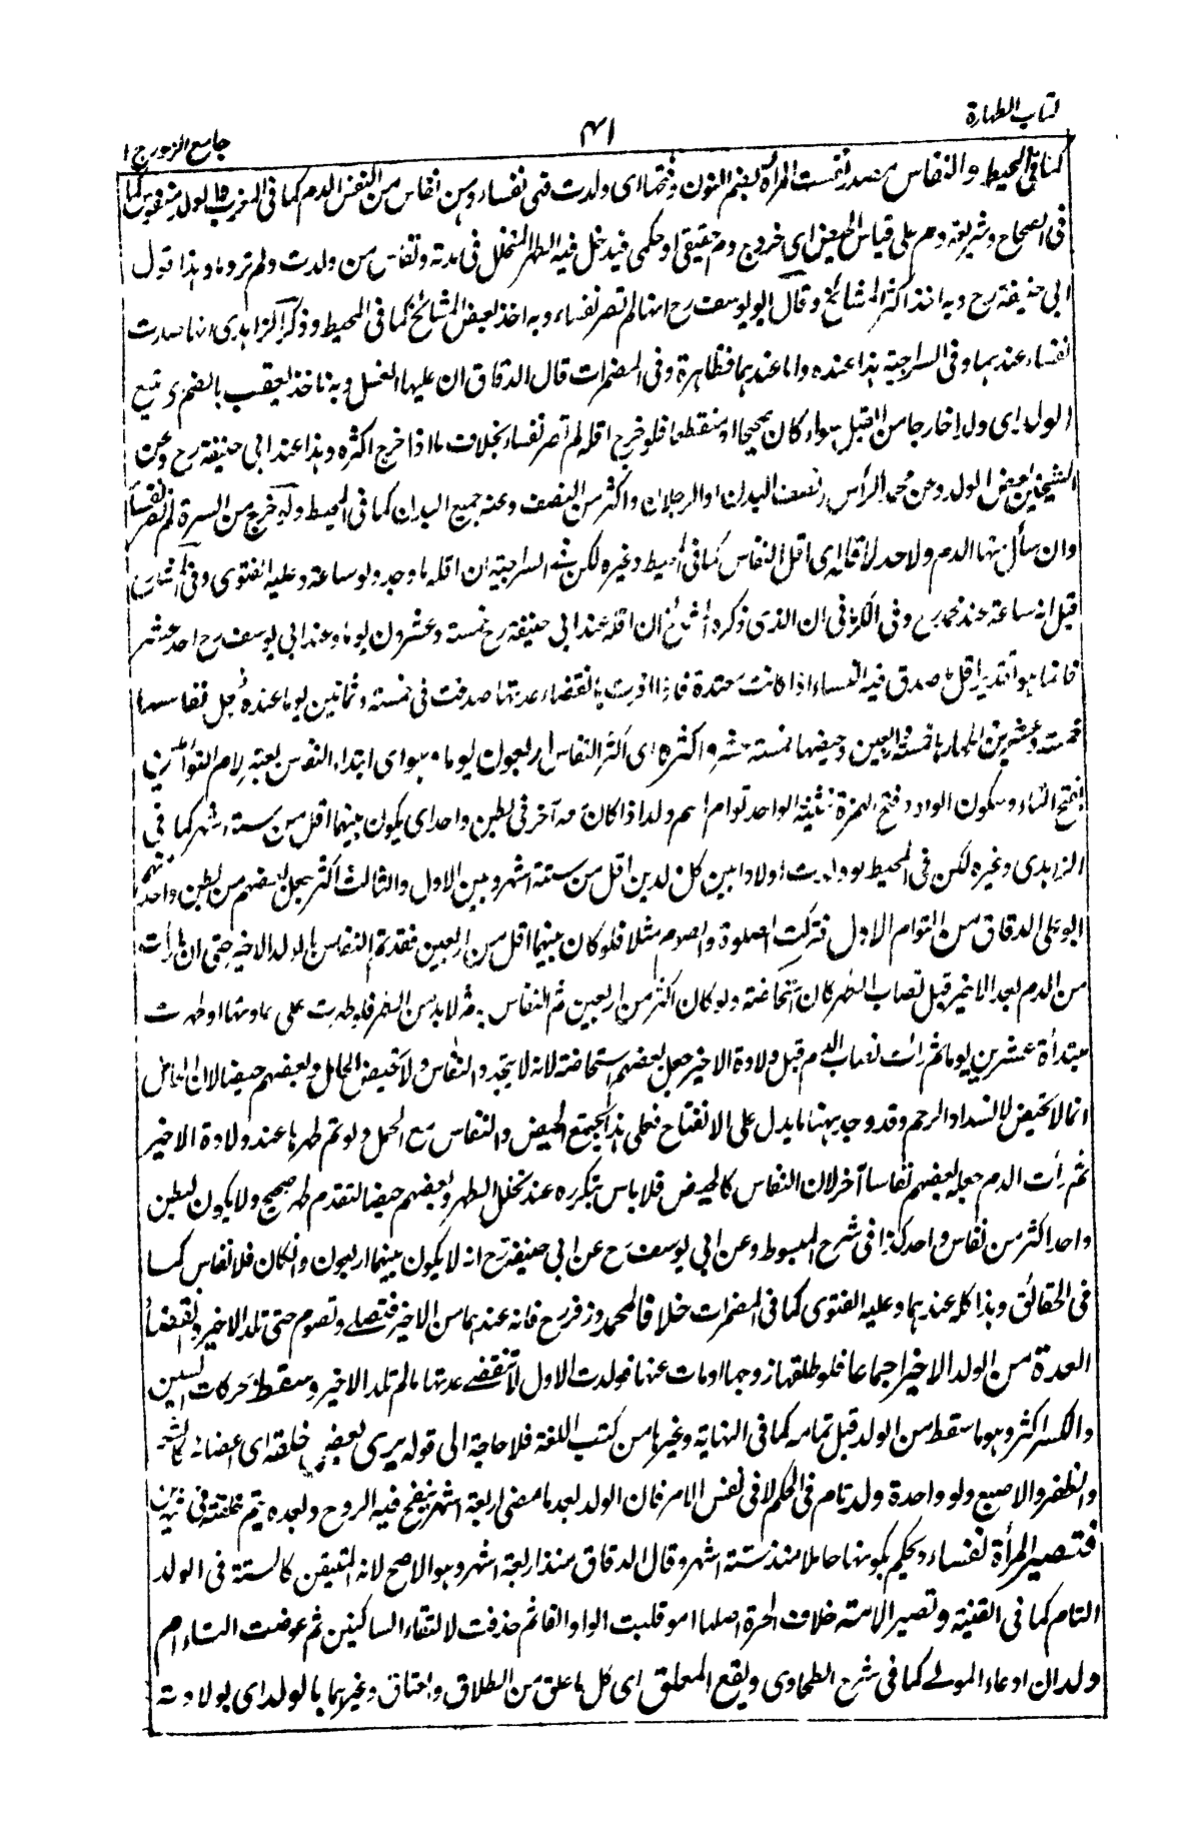 كتاب الطهارة
٤١
جامع الرموز ج ١
كما فى المحيط والنفاس مصدر نفست المرأة بضم النون وفتحها اى ولدت فهى نفساء وهن نفاس من النفس الدم كما فى المغرب والولد منفوس كما
فى الصحاح وشريعة دم على قياس الحيض اى خروج دم حقيقى او حكمى فيدخل فيه الطهر المتخلل فى مدته ونفاس من ولدت ولم تر دما وهذا قول
ابى حنيفة رح وبه اخذ اكثر المشائخ وقال ابو يوسف رح انها لم تصر نفساء وبه اخذ بعض المشائخ كما فى المحيط وذكر الزاهدى انها صارت
نفساء عندهما وفى السراجية هذا عنده واما عندهما فطاهرة وفى المضمرات قال الدقاق ان عليها الغسل وبه ناخذ يعقب بالضم اى يتبع
الولد اى ولدا خارجا من القبل سواء كان صحيحا او متقطعا فلو خرج اقله لم تصر نفساء بخلاف ما اذا خرج اكثره وهذا عند ابى حنيفة رح وعن
الشيخين بعض الولد وعن محمد الرأس ونصف البدن او الرجلان واكثر من النصف وعنه جميع البدن كما فى المحيط ولو خرج من السرة لم تصر نفساء
وان سأل منها الدم ولا حد لاقله اى اقل النفاس كما فى المحيط وغيره لكن فى السراجية ان اقله ما وجد ولو ساعة وعليه الفتوى وفى
قيل انه ساعة عند محمد رح وفى الكرمانى ان الذى ذكره المشائخ ان اقله عند ابى حنيفة رح خمسة وعشرون يوما وعند ابى يوسف رح احد عشر
فانما هو تقدير اقل ما صدق فيه النساء اذا كانت معتدة فاذا اقرت بانقضاء عدتها صدقت فى خمسة وثمانين يوما عنده يجعل نفاسها
خمسة وعشرين اطهارها خمسة واربعين وحيضها خمسة عشر واكثره اى اكثر النفاس اربعون يوما وهو اى ابتداء النفس يعتبر من الام التوأمين
بفتح التاء وسكون الواو وفتح الهمزة تثنية الواحد توام اسم ولد اذا كان معه آخر فى بطن واحد اى يكون بينهما اقل من ستة اشهر كما فى
الزاهدى وغيره لكن فى المحيط لو ولدت اولادا بين كل ولدين اقل من ستة اشهر وبين الاول والثالث اكثر يجعل بعضهم من بطن واحد منهم
ابو على الدقاق من التوام الاول فتركت الصلوة والصوم مثلا فلو كان بينهما اقل من اربعين فقد تم النفاس بالولد الاخير حتى ان ما رأت
من الدم بعد الاخير قبل نصاب الطهر كان استحاضة ولو كان اكثر من اربعين تم النفاس به ثم لا بد من الطهر فلو طهرت على عادتها او طهرت
مبتدأة عشرين يوما ثم رأت نصاب الدم قبل ولادة الاخير جعل بعضهم استحاضة لانه لا يتجدد النفاس ولا تحيض الحامل وبعضهم حيضا لان الحامل
انما لا تحيض لانسداد الرحم وقد وجد ههنا ما يدل على الانفتاح فعلى هذا يجتمع الحيض والنفاس مع الحمل ولو تم طهرها عند ولادة الاخير
ثم رأت الدم جعله بعضهم نفاسا آخر لان النفاس كالحيض فلا باس بتكرره عند تخلل الطهر وبعضهم حيضا لتقدم طهر صحيح ولا يكون لبطن
واحد اكثر من نفاس واحد كذا فى شرح المبسوط وعن ابى يوسف رح عن ابى حنيفة رح انه لا يكون بينهما اربعون وان كان فلا نفاس كما
فى الحقائق وهذا كله عندهما وعليه الفتوى كما فى المضمرات خلافا لمحمد وزفر رح فانه عندهما من الاخير فتصلى وتصوم حتى تلد الاخير وانقضاء
العدة من الولد الاخير اجماعا فلو طلقها زوجها او مات عنها فولدت الاول لا تنقضى عدتها ما لم تلد الاخير وسقط بحركات السين
والكسر اكثر وهو ما سقط من الولد قبل تمامه كما فى النهاية وغيرها من كتب اللغة فلا حاجة الى قوله يرى بعض خلقه اى اعضائه كالشعر
والظفر والاصبع ولو واحدة ولد تام فى الحكم لا فى نفس الامر فان الولد بعد ما مضى اربعة اشهر ينفخ فيه الروح وبعده يتم خلقته فى
فتصير المرأة نفساء ويحكم بكونها حاملا منذ ستة اشهر وقال الدقاق منذ اربعة اشهر وهو الاصح لانه المتيقن كالستة فى الولد
التام كما فى القنية وتصير الامة خلاف الحرة اصلها امو قلبت الواو الفا ثم حذفت لالتقاء الساكنين ثم عوضت التاء ام
ولد ان ادعاه المولى كما فى شرح الطحاوى ويقع المعلق اى كل ما علق من الطلاق والعتاق وغيرهما بالولد اى بولادته